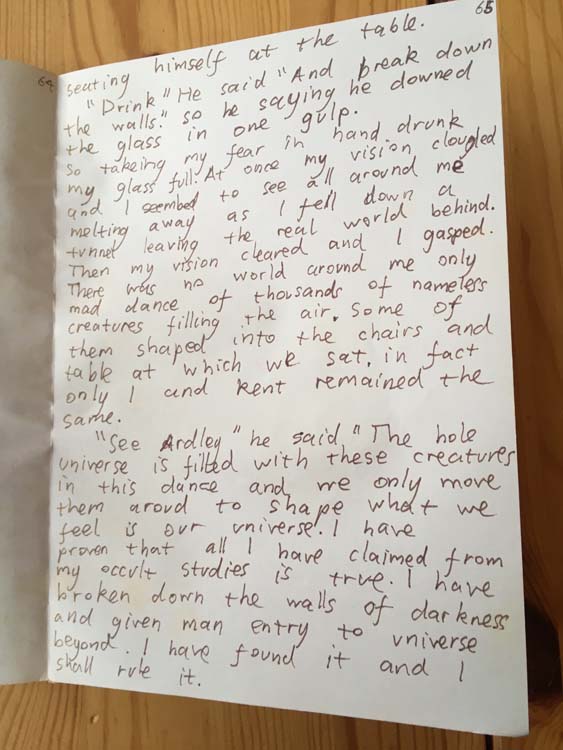 64
65
seating himself at the table.
"Drink" He said "And break down
the walls." so he saying he downed
the glass in one gulp.
So takeing my fear in hand drunk
my glass full. At once my vision clougled
and I seembed to see all around me
melting away as I fell down a
tunnel leaving the real world behind.
Then my vision cleared and I gasped.
There was no world around me only
mad dance of thousands of nameless
creatures filling the air. Some of
them shaped into the chairs and
table at which we sat, in fact
only I and Kent remained the
same.
"See Ardley" he said "The hole
universe is filled with these creatures
in this dance and we only move
them aroud to shape what we
feel is our universe. I have
proven that all I have claimed from
my occult studies is true. I have
broken down the walls of darkness
and given man entry to universe
beyond. I have found it and I
shall rule it.